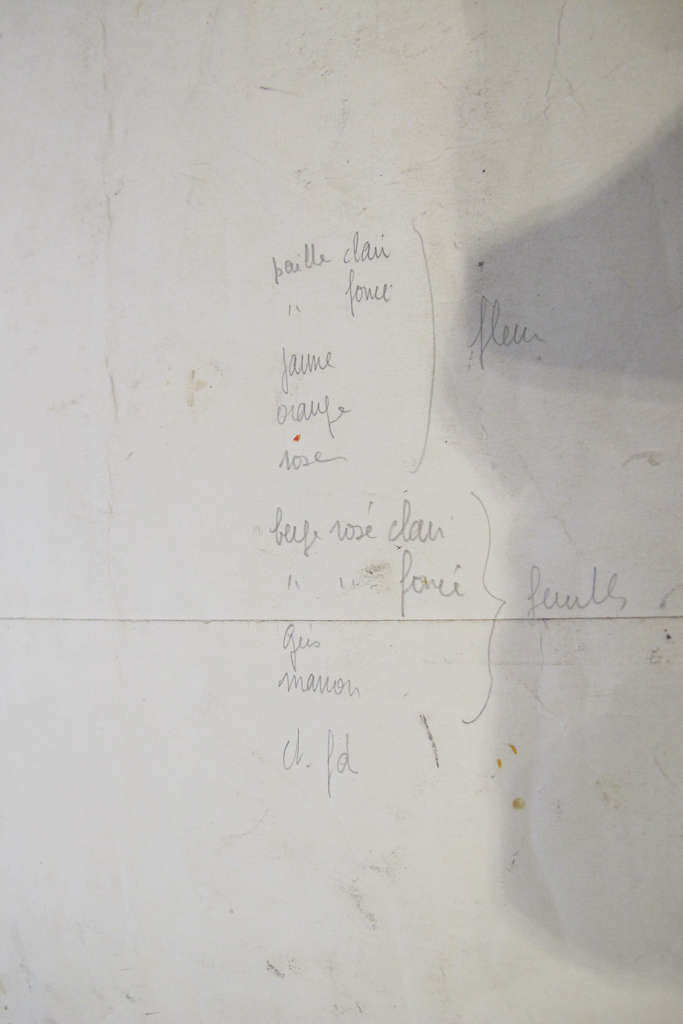 paille clair
" foncé
jaune
orange
rose
fleur
beige rosé clair
" " foncé
gris
marron
feuilles
cl. fd